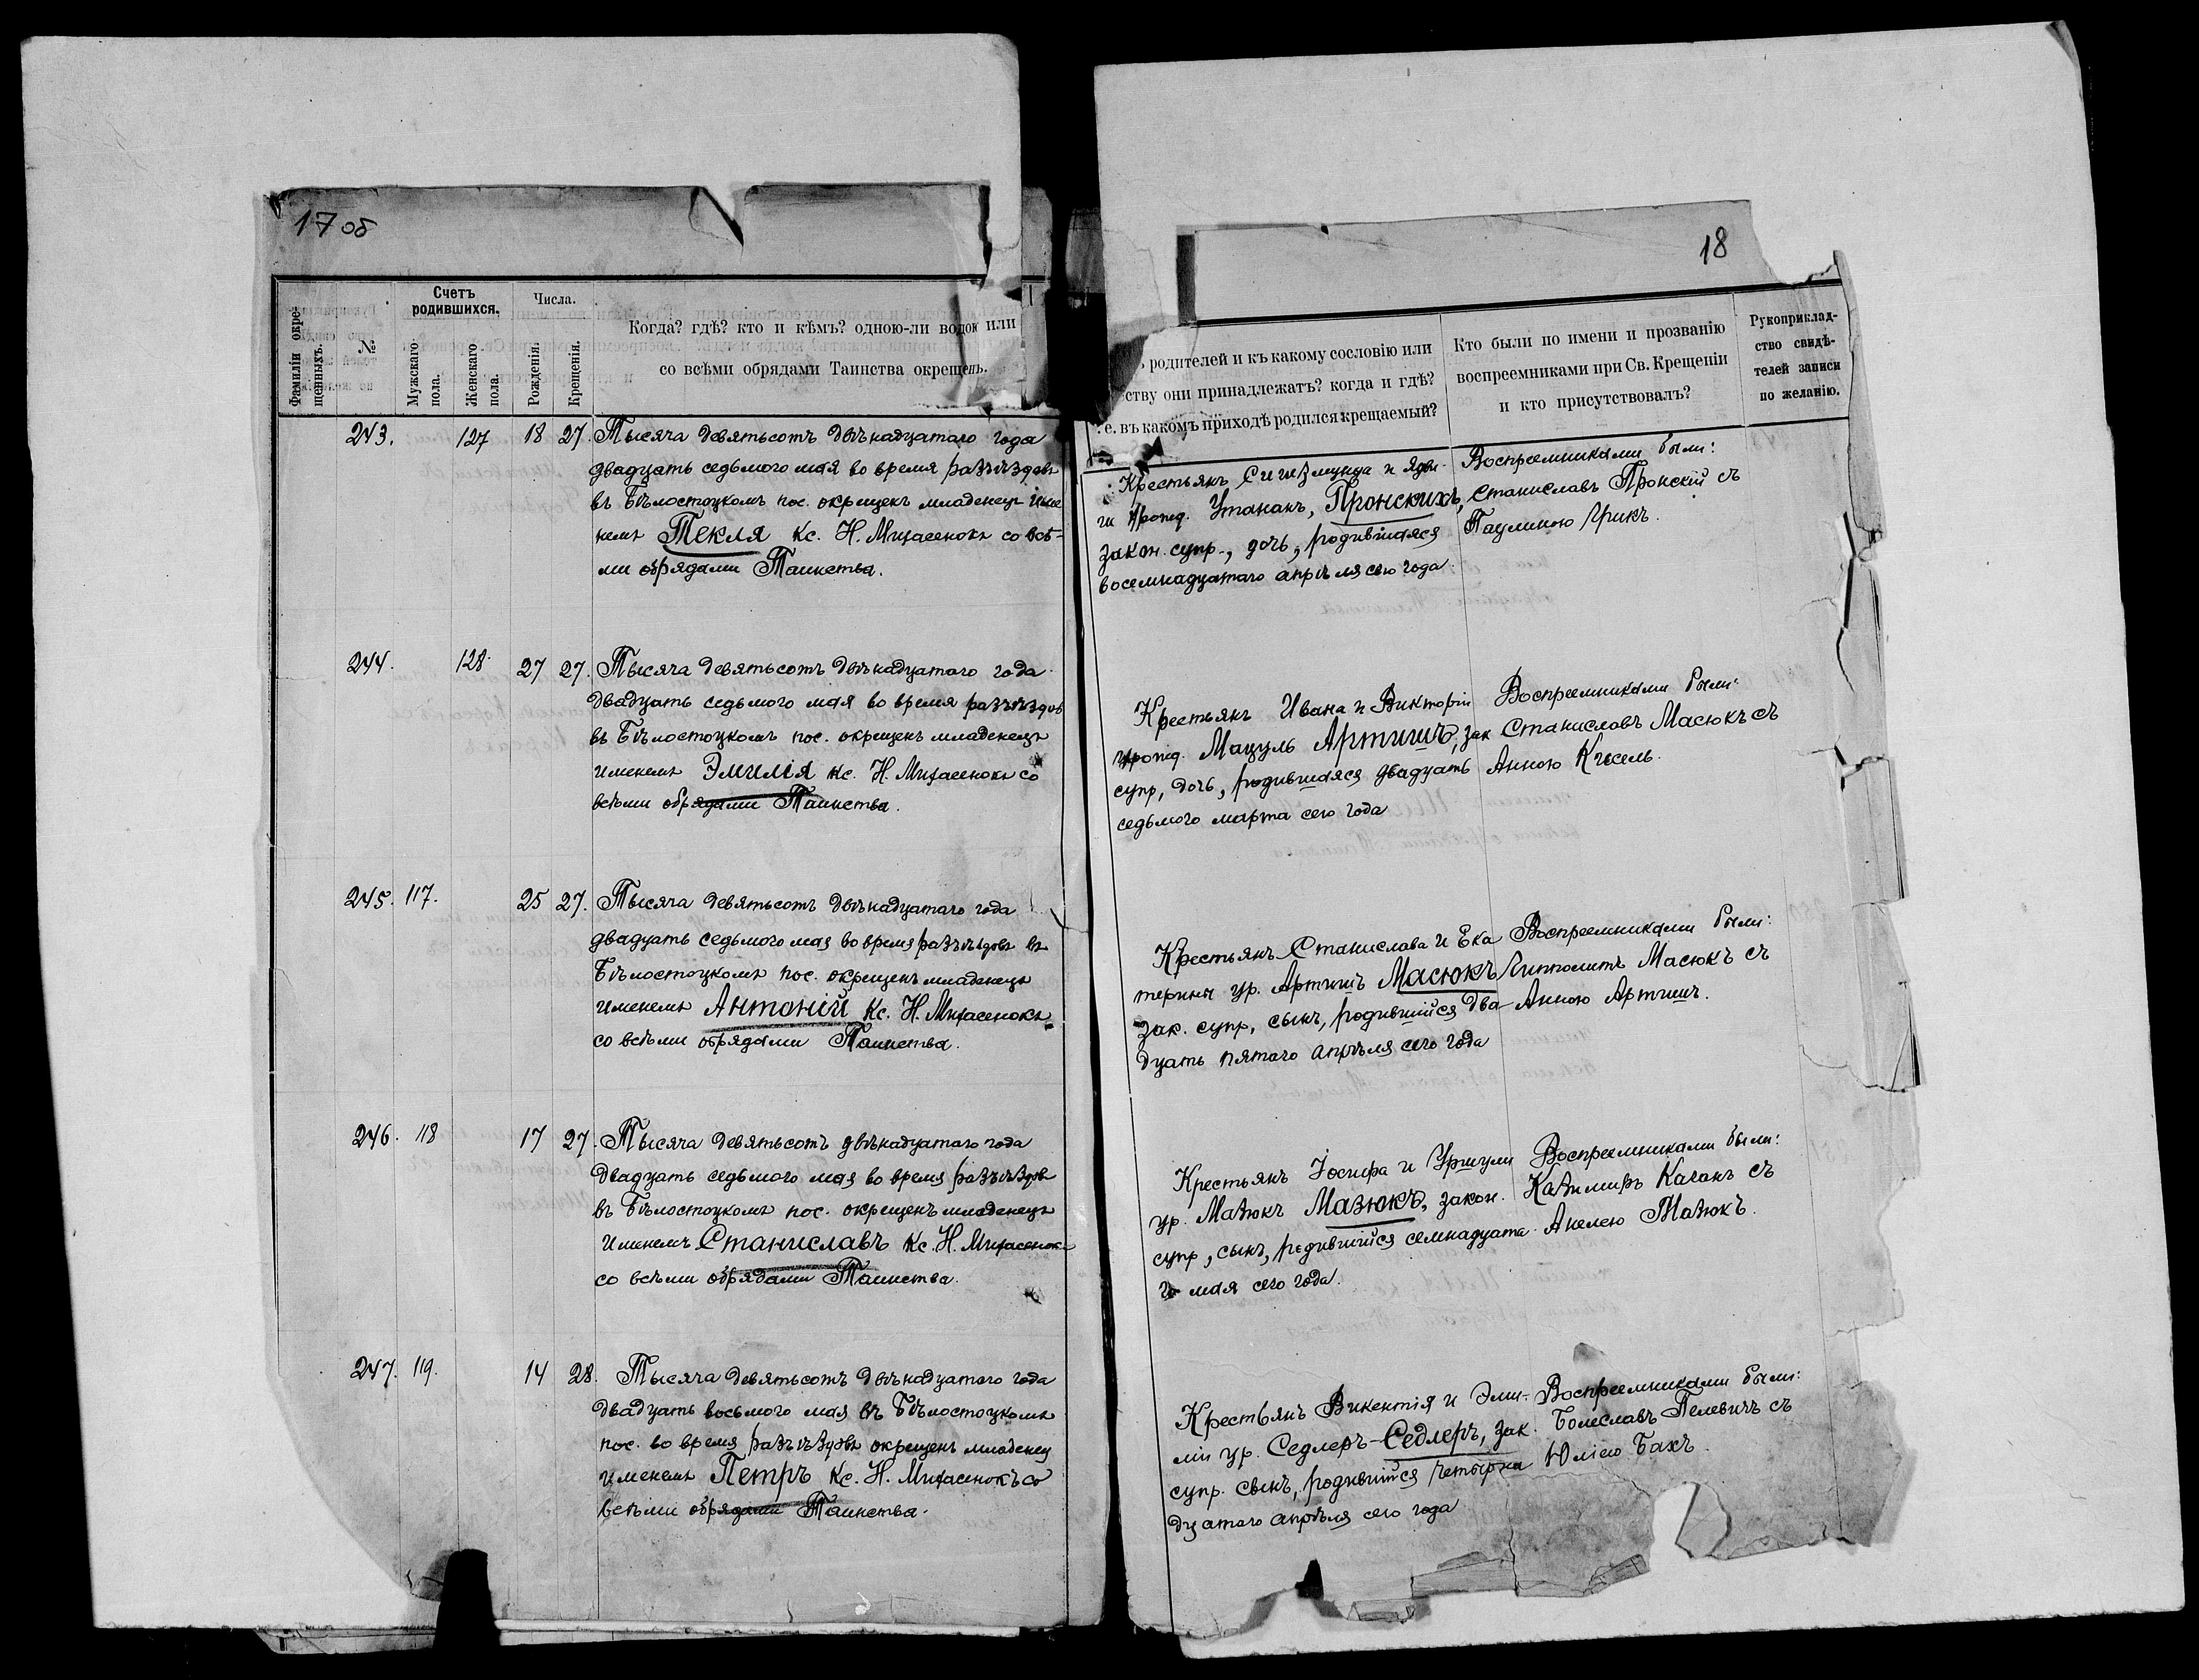 17 об
Фамиліи окре-
щенныхъ.
№
Счетъ
родившихся.
Мужскаго
пола.
Женскаго
пола.
Числа.
Рожденія.
Крещенія.
Когда? гдѣ? кто и кѣмъ? одною-ли водою или
со всѣми обрядами Таинства окрещенъ.
243. 127 18 27. Тысяча девятьсотъ двѣнадцатаго года
двадцать седьмого мая во время разъѣздовъ
въ Бѣлостоцкомъ пос. окрещенъ младенецъ име
немъ Текля Кс. Н. Михасенокъ со всѣ-
ми обрядами Таинства.
244. 128 27 27. Тысяча девятьсотъ двѣнадцатаго года
двадцать седьмого мая во время разъѣздовъ
въ Бѣлостоцкомъ пос. окрещенъ младенецъ
именемъ Эмилія Кс. Н. Михасенокъ со
всѣми обрядами Таинства.
245. 117. 25 27. Тысяча девятьсотъ двѣнадцатаго года
двадцать седьмого мая во время разъѣздовъ въ
Бѣлостоцкомъ пос. окрещенъ младенецъ
именемъ Антоній Кс. Н. Михасенокъ
со всѣми обрядами Таинства.
246. 118 17 27. Тысяча девятьсотъ двѣнадцатаго года
двадцать седьмого мая во время разъѣздовъ
въ Бѣлостоцкомъ пос. окрещенъ младенецъ
именемъ Станиславъ Кс. Н. Михасенокъ
со всѣми обрядами Таинства.
247. 119. 14 28. Тысяча девятьсотъ двѣнадцатаго года
двадцать восьмого мая въ Бѣлостоцкомъ
пос. во время разъѣздовъ окрещенъ младенец
именемъ Петръ Кс. Н. Михасенокъ со
всѣми обрядами Таинства.
18
родителей и къ какому сословію или
ству они принадлежатъ? когда и гдѣ?
е. въ какомъ приходѣ родился крещаемый?
Кто были по имени и прозванію
воспреемниками при Св. Крещеніи
и кто присутствовалъ?
Рукоприклад-
ство свидѣ-
телей записи
по желанію.
Крестьянъ Сигизмунда и Ядви-
ги урожд. Пронскихъ,
закон. супр., дочь, родившаяся
восемнадцатаго апрѣля сего года
Воспреемниками были:
Станиславъ Пронскій съ
Паулиною
Крестьянъ Ивана и Викторіи
урожд. Мацуль Артишъ, зак
супр, дочь, родившаяся двадцать
седьмого марта сего года
Воспреемниками были:
Станиславъ Масюкъ съ
Анною Кѣсель.
Крестьянъ Станислава и Ека
терины ур. Артишъ Масюкъ
зак. супр, сынъ, родившійся два
дцать пятаго апрѣля сего года
Воспреемниками были:
Ипполитъ Масюкъ съ
Анною Артишъ.
Крестьянъ Іосифа и Уршули
ур. Мазюкъ Мазюкъ, закон.
супр, сынъ, родившійся семнадцата
го мая сего года.
Воспреемниками были:
Казимиръ Качанъ съ
Анелею Мазюкъ.
Крестьянъ Викентія и Эми-
ліи ур. Седлеръ-Седлеръ, зак.
супр. сынъ, родившійся четырна
дцатаго апрѣля сего года
Воспреемниками были:
Болеславъ Пелевичъ съ
Юліею Бахъ.